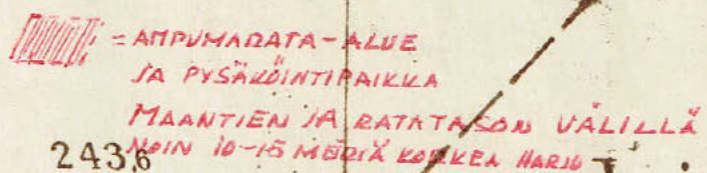 = AMPUMARATA-ALUE
JA PYSÄKÖINTIPAIKKA
MAANTIEN JA RATATASON VÄLILLÄ
NOIN 10-15 METRIÄ KORKEA HARJU
243,6